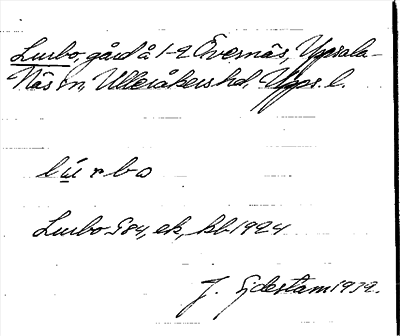 Lurbo, gård å 1-2 Övernäs, Uppsala-
Näs sn, Ulleråkers hd, Upps. l.
lúrbo
Lurbo S84, ek, kbl 1924
J. Ejdestam 1939.